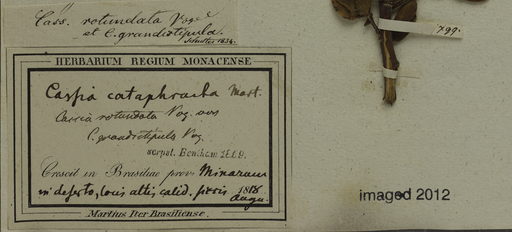 Cass. rotundata Vogel
et C. grandistipula.
Schultes 1834.
799.
HERBARIUM REGIUM MONACENSE
Cassia cataphracta Mart.
Cassia rotundata Vog. aus
C. grandistipula Vog.
script. Bentham 1869.
Crescit in Brasiliae prov. Minarum
in deserto, locis altis calid. siccis 1818
Augu.
Martius Iter Brasiliense.
imaged 2012